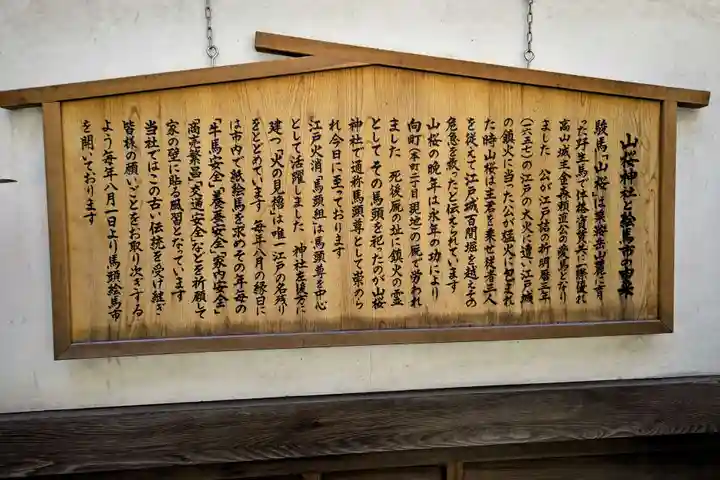 山桜神社と絵馬市の由来
駿馬「山桜」は乗鞍岳山麓に育
った坪生馬で体格資質共に一際優れ
高山城主金森頼直公の愛馬となり
ました 公が江戸詰の折明暦三年
(一六五七)の江戸の大火に遭い江戸城
の鎮火に当った公が猛火に包まれ
た時山桜は主君を乗せ従者三人
を従えて江戸城百間堀を越えその
危急を救ったと伝えられています
山桜の晩年は永年の功により
向町(本町二丁目現地)の厩で労われ
ました 死後厩の址に鎮火の霊
としてその馬頭を祀ったのが山桜
神社で通称馬頭尊として崇めら
れ今日に至っております
江戸火消「馬頭組」は馬頭尊を中心
として活躍しました 神社左後方に
建つ「火の見櫓」は唯一江戸の名残り
をとどめています 毎年八月の縁日に
は市内で紙絵馬を求めその年毎の
「牛馬安全」「養蚕安全」「家内安全」
「商売繁昌」「交通安全」などを祈願して
家の壁に貼る風習となっています
当社ではこの古い伝統を受け継ぎ
皆様の願いごとをお取り次ぎする
よう毎年八月一日より馬頭絵馬市
を開いております